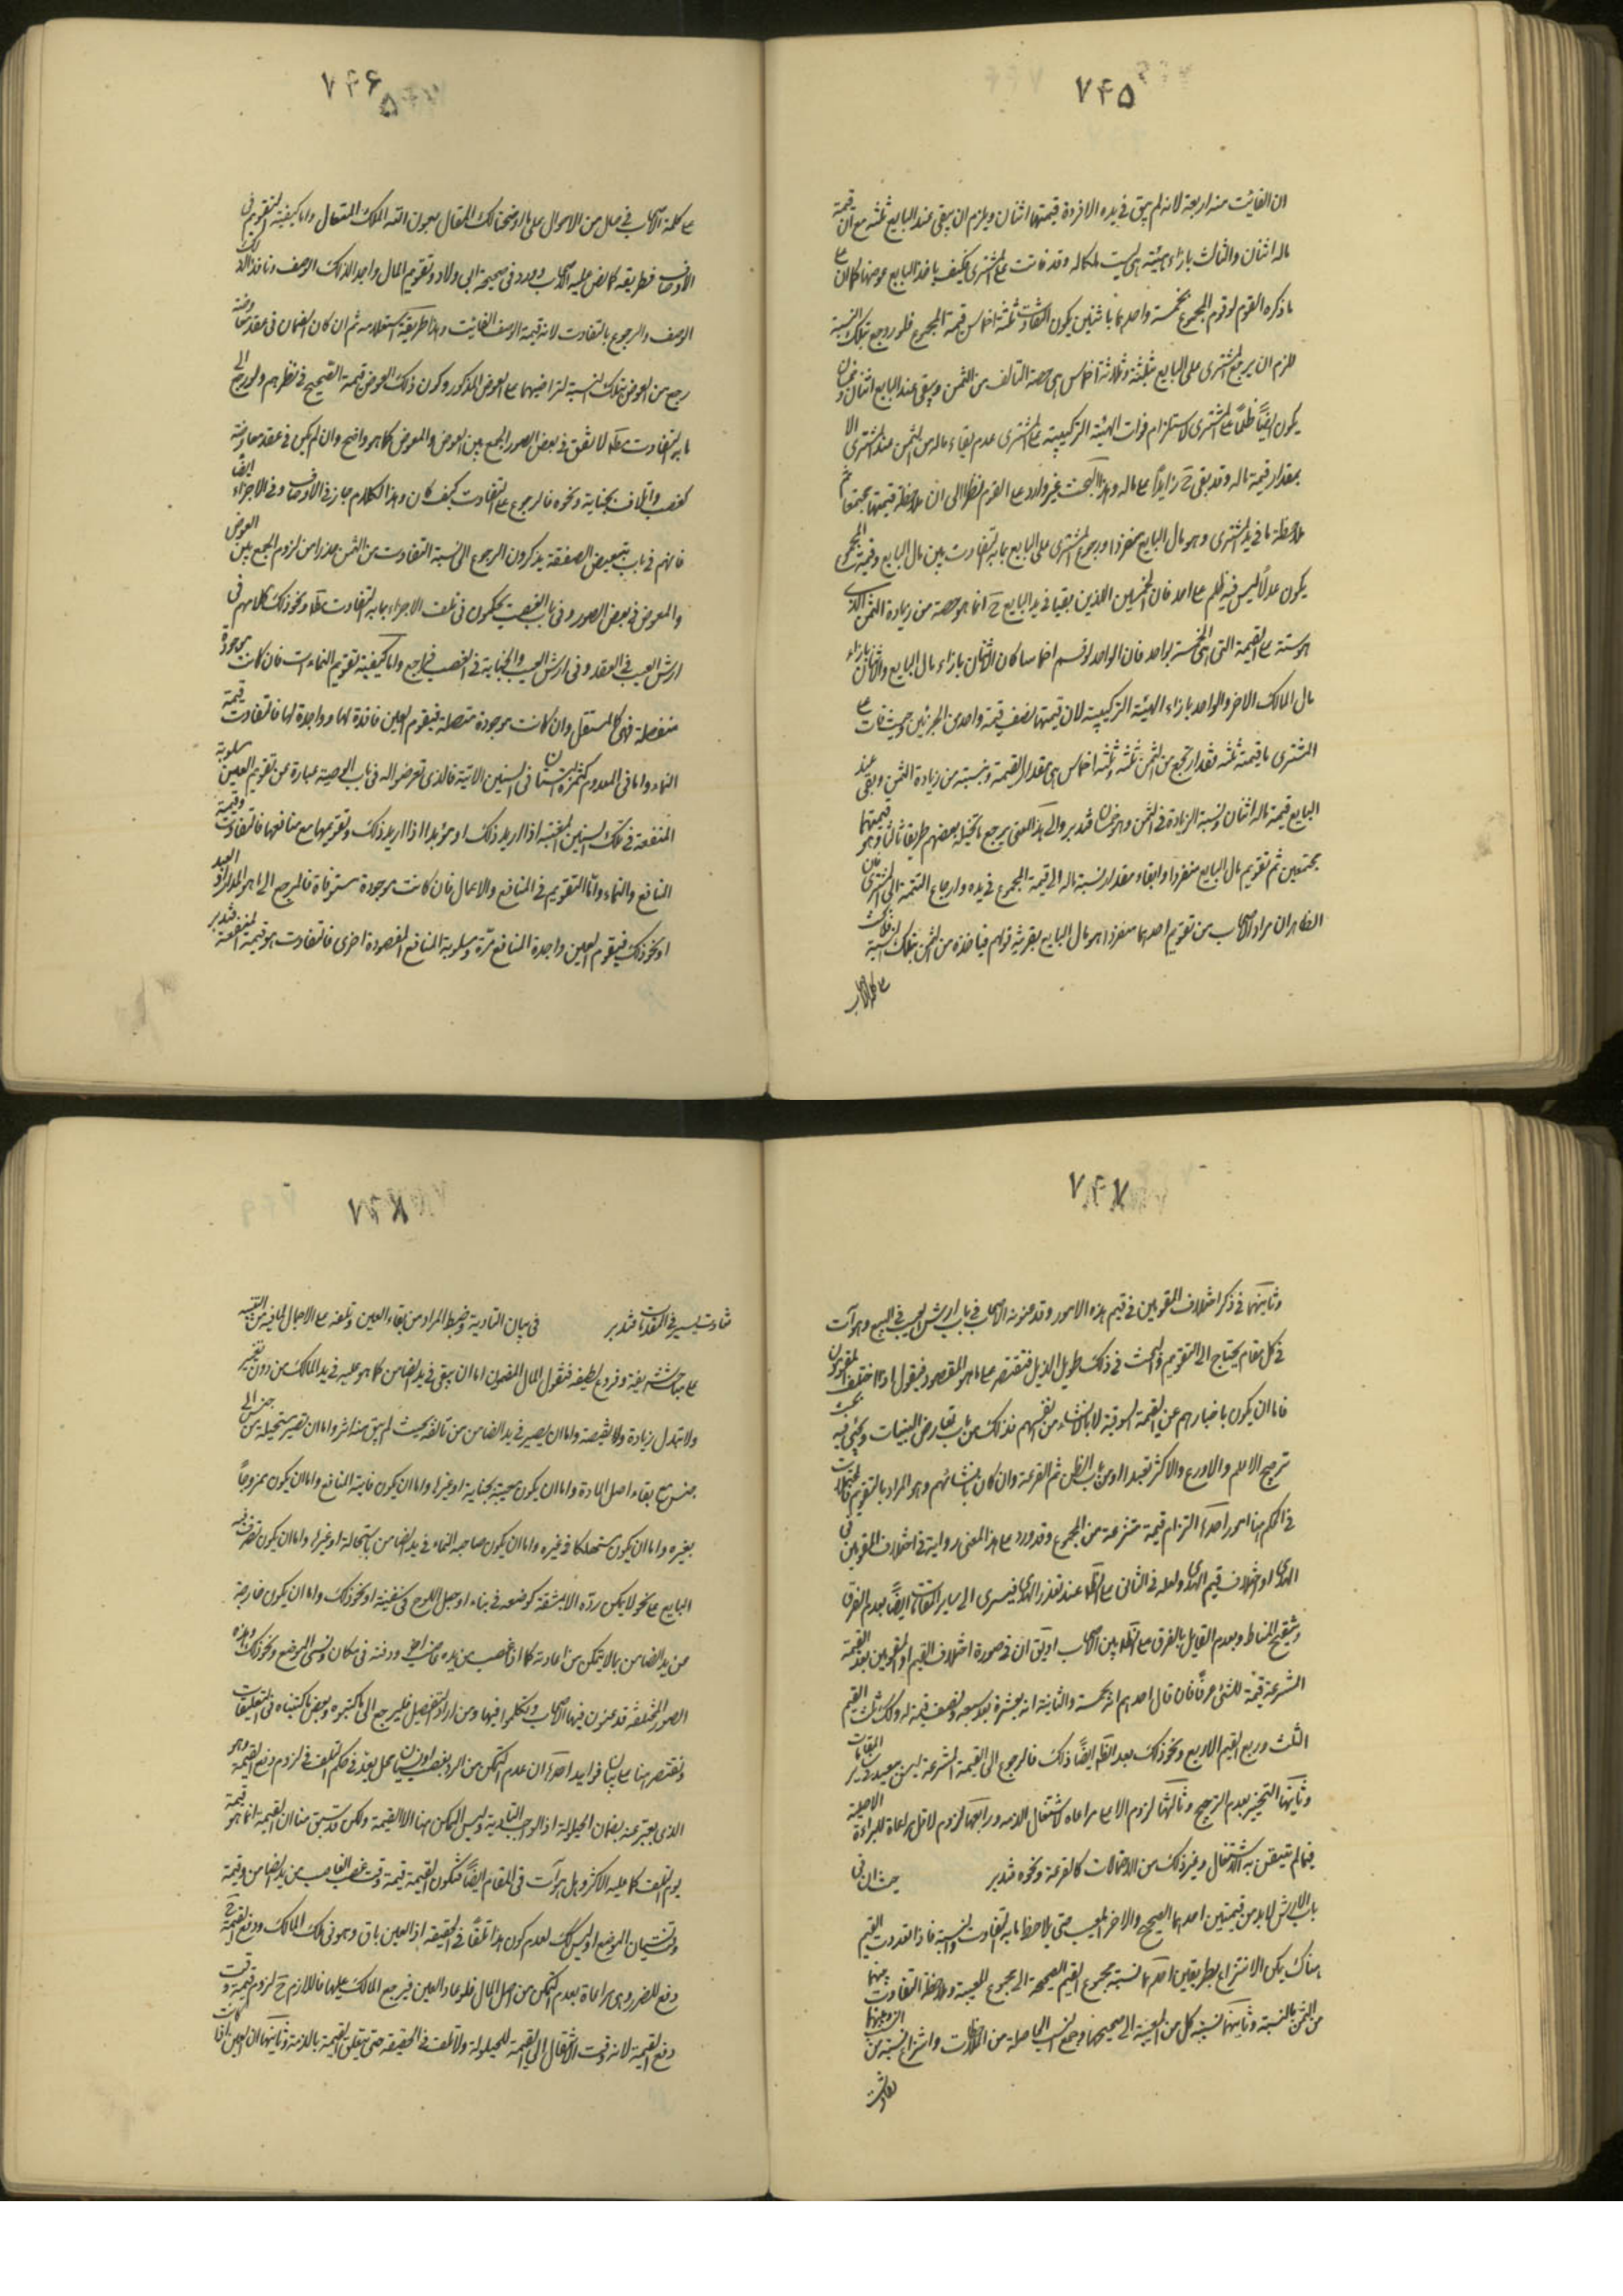 ۷۴۵
ان الفائت منه اربعة لانه لم يبق في يده الا فردة قيمتها اثنان ويلزم ان يبقى عند البايع ثلثة مع ان قيمة
ماله اثنان والثالث بازاء هيئة هي ليست بماله وقد فاتت على المشترى فكيف ياخذ البايع عوضها كما ان على
ما ذكره القوم لو قوم المجموع بخمسة واحدهما باثنين يكون التفاوت ثلثة اخماس قيمة المجموع فلو رجع بتلك النسبة
للزم ان يرجع المشترى على البايع بثلثة وثلاثة اخماس هي حصة التالف من الثمن ويبقى عند البايع اثنان وخمسان
يكون ايضًا ظلمًا على المشترى لاستلزام فوات الهيئة التركيبية على المشترى عدم بقاء ماله من الثمن عند المشترى الا
بمقدار قيمة ماله وقد بقى ح زايدًا على ماله وهذا البحث غير وارد على القوم نظرا الى ان ملاحظة قيمتها مجتمعا ثم
ملاحظة ما في يد المشترى وهو مال البايع منفردا ورجوع المشترى على البايع بما به التفاوت بين مال البايع وقيمة المجموع
يكون عدلًا ليس فيه ظلم على احد فان الخمسين اللذين بقيا في يد البايع ح انما هو حصة من زيادة الثمن الذى
هو ستة على القيمة التى هى الخمسة بواحد فان الواحد لو قسم اخماسا كان الاثنان بازاء مال البايع والاثنان بازاء
مال المالك الاخر والواحد بازاء الهيئة التركيبية لان قيمتها نصف قيمة واحد من الجزئين وحيث فات على
المشترى ما قيمته ثلثة فقد ارتجع من الثمن ثلثة وثلثة اخماس هى مقدار القيمة ونسبته من زيادة الثمن وبقى عند
البايع قيمة ماله اثنان ونسبة الزيادة في الثمن وهو خمسان فتدبر والى هذا المعنى يرجع ما تخيله بعضهم طريقا ثالثا وهو قيمتهما
مجتمعين ثم تقويم مال البايع منفردا وابقاء مقدار نسبة ماله الى قيمة المجموع في يده وارجاع التتمة الى المشترى فان
الظاهر ان مراد الاصحاب من تقويم احدهما منفردا هو مال البايع بقرينة قولهم فياخذه من الثمن بتلك النسبة
على كلمة الاصحاب
۷۴۶
على كلمة الاصحاب في مثل من الاحوال على ما اوضحنا لك المقال بعون الله الملك المتعال واما كيفية التقويم فى
الاوصاف فطريقه كما نص عليه الاصحاب وورد فى صحيحة ابى ولاد وتقويم المال واجدا لذلك الوصف وفاقدا لذلك
الوصف والرجوع بالتفاوت لانه قيمة الوصف الفائت وهذا طريقة استعلامه ثم ان كان الضمان فى عقد معاوضة
رجع من العوض بتلك النسبة لتراضيهما على العوض المذكور وكون ذلك العوض قيمة الصحيح في نظرهم ولو رجع الى
ما به التفاوت مطلقا لاتفق في بعض الصور الجمع بين العوض والمعوض كما هو واضح وان لم يكن في عقد معاوضة
كغصب واتلاف بجناية ونحوه فالرجوع على التفاوت كيف كان وهذا الكلام جاز في الاوصاف وفى الاجزاء ايضًا
فانهم في باب تبعيض الصفقة يذكرون الرجوع الى نسبة التفاوت من الثمن حذرا من لزوم الجمع بين العوض
والمعوض في بعض الصور وفى باب الغصب يحكمون فى تلف الاجزاء بما به التفاوت مطلقا ونحو ذلك كلامهم فى
ارش العيب في العقد وفى ارش العيب والجناية في الغصب فراجع واما كيفية تقويم النماءات فان كانت موجودة
منفصلة فهى كالمستقل وان كانت موجودة متصلة فيقوم العين فاقدة لها وواجدة لها فالتفاوت قيمة
النماء واما فى المعدوم كثمرة البستان فى السنين الاتية فالذى تعرضوا له فى باب الوصية عبارة عن تقويم العين مسلوبة
المنفعة في تلك السنين المعينة اذا اريد ذلك او مؤبدا اذا اريد ذلك وتقويمها مع منافعها فالتفاوت قيمة
المنافع والنماء واما التقويم في المنافع والاعمال فان كانت موجودة مستوفاة فالمرجع الى اهل المدار لو العبد
او نحو ذلك فيقوم العين واجدة المنافع مرة ومسلوبة المنافع المقصودة اخرى فالتفاوت هو قيمة المنفعة فتدبر
۷۴۷
وثانيتهما في ذكر اختلاف المقومين في قيم هذه الامور وقد عنونه الاصحاب في باب ارش العيب في البيع وهو آت
في كل مقام يحتاج الى التقويم والبحث في ذلك طويل الذيل فنقتصر على ما هو المقصود فنقول اذا اختلف المقومون
فاما ان يكون باخبارهم عن القيمة السوقية لا بانشاء من انفسهم فذلك من باب تعارض البينات ويجئ فيه بحث
ترجيح الاعلم والاورع والاكثر تعبدا او من باب الظن ثم القرعة وان كان بانشائهم وهو المراد بالتقويم فالمحتملات
في الحكم هنا امور احدها التزام قيمة منتزعة من المجموع وقد ورد على هذا المعنى رواية في اختلاف المقومين فى
الهدى او اختلاف قيم الهدى ولعله في الثانى على الظ عند تعذر الهدى فيسرى الى ساير المقامات ايضًا بعدم الفرق
وبتنقيح المناط وبعدم القايل بالفرق على الظ بين الاصحاب او يق ان في صورة اختلاف القيم او المقومين بعد القيمة
المنتزعة قيمة للشئ عرفًا فان قال احدهم انه بخمسة والثانية انه بعشرة بعد سبعة ونصف قيمة له وكذلك ثلث القيم
الثلث وربع القيم الاربع ونحو ذلك بعد الظ ايضًا ذلك فالرجوع الى القيمة المنتزعة ليس ببعيد في ساير المقامات
وثانيها التخيير بعدم الترجيح وثالثها لزوم الاعلى مراعاة لاشتغال الذمة ورابعها لزوم الاقل مراعاة للبراءة الاصلية
فيما لم يتيقن به الاشتغال وغير ذلك من الاحتمالات كالقرعة ونحوه فتدبر حيث ان فى
باب الارش لابد من قيمتين احدهما الصحيح والاخر المعيب حتى يلاحظ ما به التفاوت بالنسبة فاذا تعددت القيم
هناك يمكن الانتزاع بطريقين احدهما نسبة مجموع القيم الصحيحة الى مجموع المعيبة وملاحظة التفاوت بينهما
من الثمن بالنسبة وثانيهما نسبة كل من المعيبة الى صحيحها وجمع النسب الحاصلة من الملاحظات وانتزاع نسبة من
تفاوت
۷۴۸
تفاوت يسير في العقد فتدبر في بيان التادية وضبط المراد من بقاء العين وتلفه على الاجمال لما فيه من التنبيه
على مباحث شريفة وفروع لطيفة فنقول المال المضمون اما ان يبقى في يد الضامن كما هو عليه في يد المالك من دون تغيير
ولا تبدل زيادة ولا نقيصة واما ان يصير في يد الضامن من تالفة بحيث لم يبق منه اثر واما ان تصير مستحيلة من جنس الى
جنس مع بقاء اصل المادة واما ان يكون معيبة بجناية او غيرها واما ان يكون فايتة المنافع واما ان يكون ممزوجًا
بغيره واما ان يكون مستهلكا في غيره واما ان يكون صاحبه النماء في يد الضامن باستحالة او غيرها واما ان يكون تصرف فيه
البايع على نحو لا يمكن رده الا بمشقة كوضعه في بناء او جعل اللوح في سفينة او نحو ذلك واما ان يكون خارجة
عن يد الضامن بما لا يتمكن من اعادته كما اذا غصب من يده غاصب او دفنه فى مكان ونسى الموضع ونحو ذلك وهذه
الصور المختلفة قد عنون فيها الاصحاب وتكلموا فيها ومن اراد التفصيل فليرجع الى ما كتبوه وبعض ما كتبناه فى التعليقات
ونقتصر هنا على بيان فوايد احدها ان عدم التمكن من الرد بغصب او نسيان محل يعد في حكم التلف في لزوم دفع القيمة وهو
الذى يعبر عنه بضمان الحيلولة اذ الواجب التادية وليس الممكن هنا الا القيمة ولكن قد سبق منا ان القيمة انما هو قيمة
يوم التلف كما عليه الاكثر وهل هو آت فى المقام ايضًا فتكون القيمة قيمة وقت غصب الغاصب من يد الضامن وقيمة
وقت نسيان الموضع او ليس كذلك لعدم كون هذا تلفًا في الحقيقة اذ العين باق وهو فى ملك المالك ودفع القيمة ح
دفع للضرر وهى مراعاة بعدم التمكن من اصل المال فلو عاد العين فيرجع المالك عليها فاللازم ح لزوم قيمة وقت
دفع القيمة لانه وقت الانتقال الى القيمة للحيلولة ولا تلف في الحقيقة حتى يتعلق القيمة بالذمة وثانيها ان العين باقيا